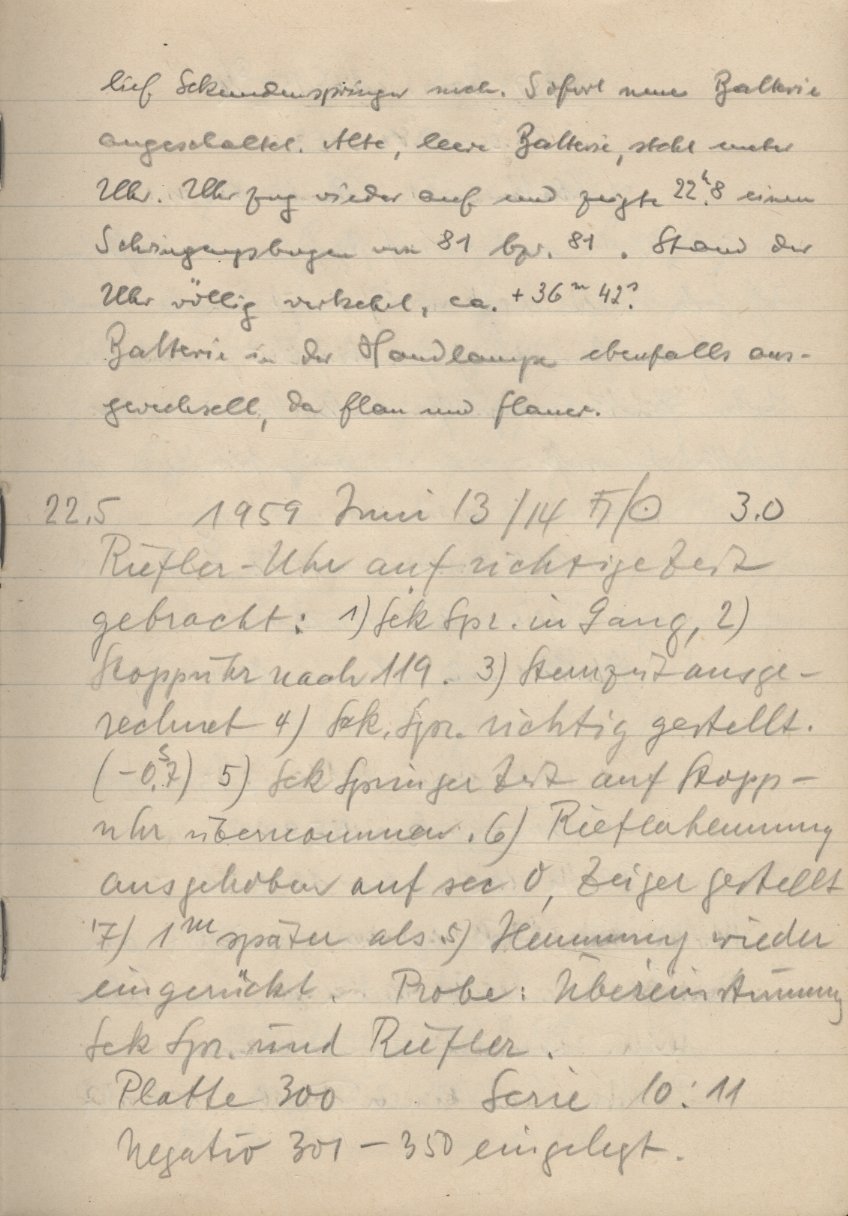 lief Sekundenspringer nach. Sofort neue Batterie
angeschaltet. Alte, leere Batterie, steht unter
Uhr. Uhr zog wieder auf und zeigte 22ʰ.8 einen
Schwingungsbogen von 81 bzw. 81. Stand der
Uhr völlig verkehrt, ca. +36ᵐ 42ˢ.
Batterie in der Handlampe ebenfalls aus-
gewechselt, da flau und flauer.
22.5 1959 Juni 13/14 ♄/☉ 3.0
Riefler-Uhr auf richtige Zeit
gebracht: 1) Sek Spr. in Gang, 2)
Stoppuhr nach 119. 3) Sternzeit ausge-
rechnet 4) Sek. Spr. richtig gestellt.
(-0ˢ.7) 5) Sek Springer Zeit auf Stopp-
uhr übernommen. 6) Rieflerhemmung
ausgehoben auf sec 0, Zeiger gestellt
7) 1ᵐ später als 5) Hemmung wieder
eingerückt. Probe: Übereinstimmung
Sek Spr. und Riefler.
Platte 300 Serie 10:11
Negativ 301 - 350 eingelegt.